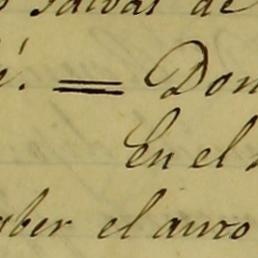 salvas de
é. = Don
En el
aber el auto